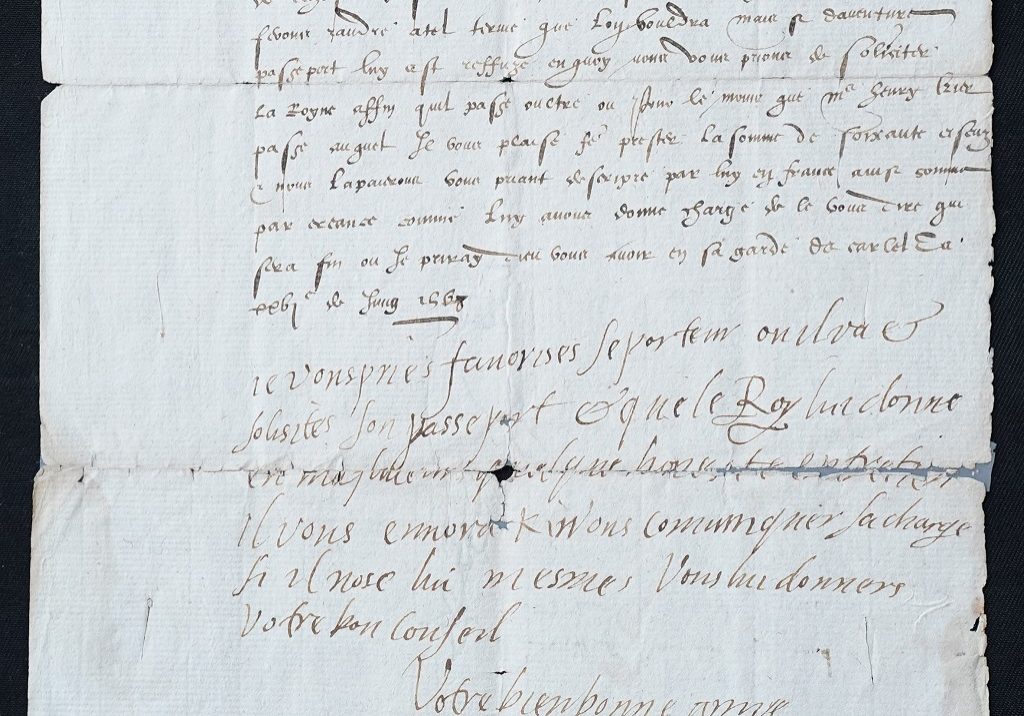 fevons randre a tel terme que luy vouldra mais si daventure
passeport luy est reffuze en quoy nous vous prions de soliciter
La Royne affin quil passe oultre ou pour le moins que Mr henry
passe auquel Il vous plaise prester La somme de soixante
nous Lapaierons vous priant descripre par luy en france ainsi comme
par creance comme luy avons donne charge de le vous dire qui
sera fin ou Je priray dieu vous avoir en sa garde de carlel Ce
xxvje de Juing 1568
ie vous pries favorises se porteur ou il va &
solisites son passeport & que le Roy lui donne
en ma faveur quelque honeste entretien
Il vous comuniquer sa charge
si il nose lui mesmes Vous lui donneres
Votre bon conseil
Votre bien bonne amye